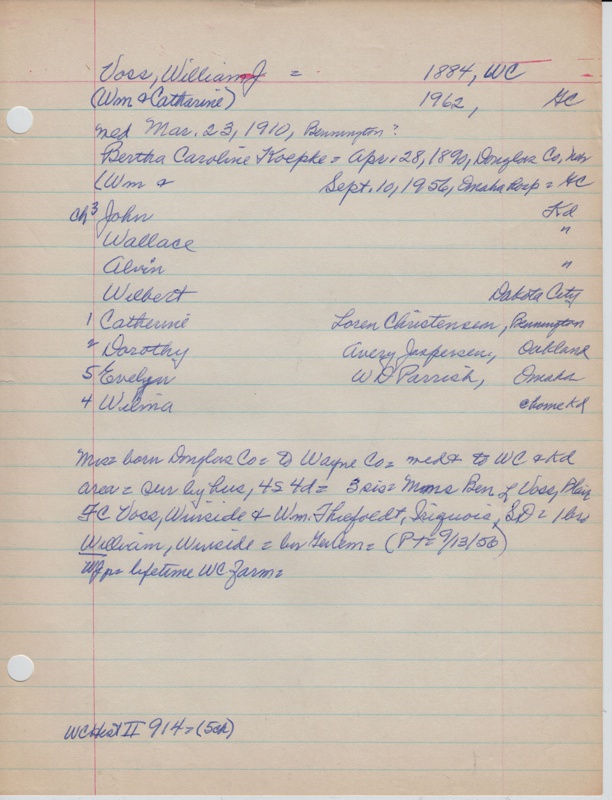 Voss, William J = 1884, WC
(Wm & Catharine) 1962, GC
med Mar. 23, 1910, Bennington?
Bertha Caroline Koepke = Apr. 28, 1890, Douglas Co,
(Wm & Sept. 10, 1956, Omaha Hosp = GC
ch 3 John Kd
Wallace "
Alvin "
Wilbert Dakota City
1 Catherine Loren Christensen, Bennington
2 Dorothy Avery Jaspersen, Oakland
5 Evelyn W D Parrish, Omaha
4 Wilma @home Kd
Mrs = born Douglas Co = to Wayne Co = med & to WC & Kd
area = sur by hus, 4s 4d = 3 sis = Mmes Ben L Voss, Plain
FC Voss, Winside & Wm. Thiefoldt, Iriquois, SD = 1 bro
William, Winside = bur = (PT = 9/13/56)
= lifetime WC farm =
WC Hist II 914 = (5ch)